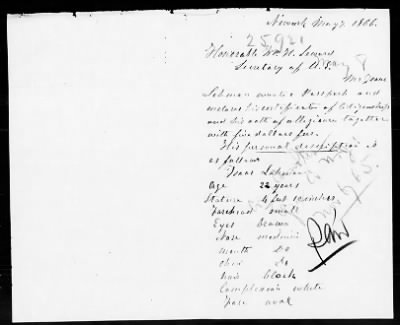 Newark May 7. 1866.
25921
Honorable Wm H. Seward
Secretary of U.S.
May 8
Mr Isaac
Lehman wants a Passport and
encloses his certificate of Citizenship
and his oath of allegiance together
with five dollars fee.
His personal description is
as follows
Isaac Lehman
Age 22 years
Stature 4 feet inches
Forehead small
Eyes brown
Nose medium
Mouth do
Chin do
Hair black
Complexion white
Face oval